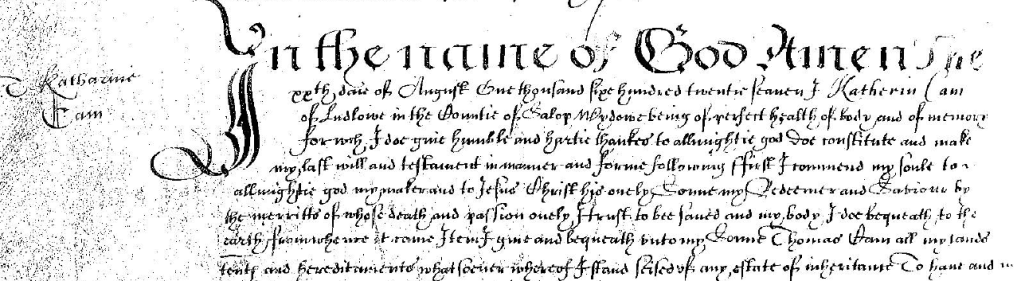 Katharine
Cam
In the name of God Amen The
xxth daie of August One thousand sixe hundred twentie seaven I Katherin Cam
of Ludlowe in the Countie of Salop Wydowe being of perfect health of body and of memory
for wch I doe give humble and hartie thankes to allmightie god doe constitute and make
my last will and testament in manner and forme following ffirst I commend my soule to
allmightie god my maker and to Jesus Christ his onely Sonne my Redeemer and Saviour by
the merritts of whose death and passion onely I trust to bee saved and my body I doe bequeath to the
earth from whence it came Item I give and bequeath unto my Sonne Thomas Cam all my lands
tents and hereditaments whatsoever whereof I stand seised of any estate of inheritance To have and